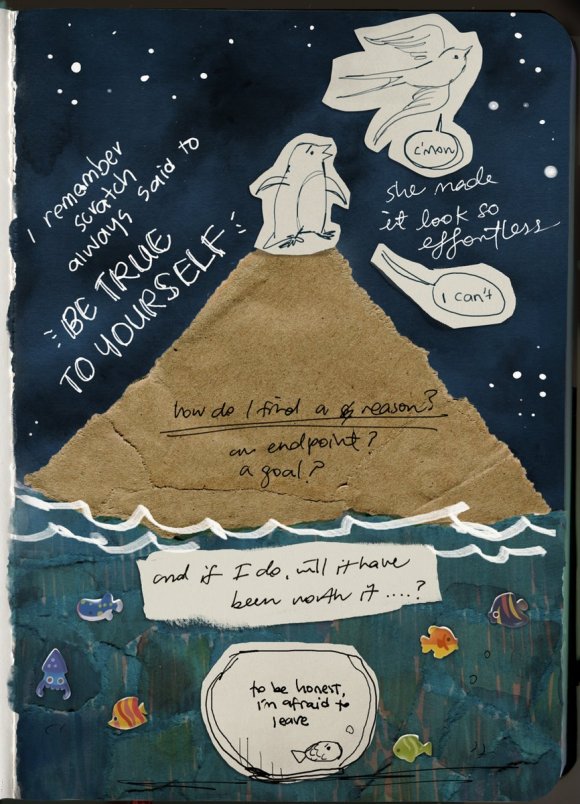 c'mon
I remember
scratch
always said to
BE TRUE
TO YOURSELF
she made
it look so
effortless
I can't
how do I find a reason?
an endpoint?
a goal?
and if I do, will it have
been worth it ....?
to be honest,
i'm afraid to
leave